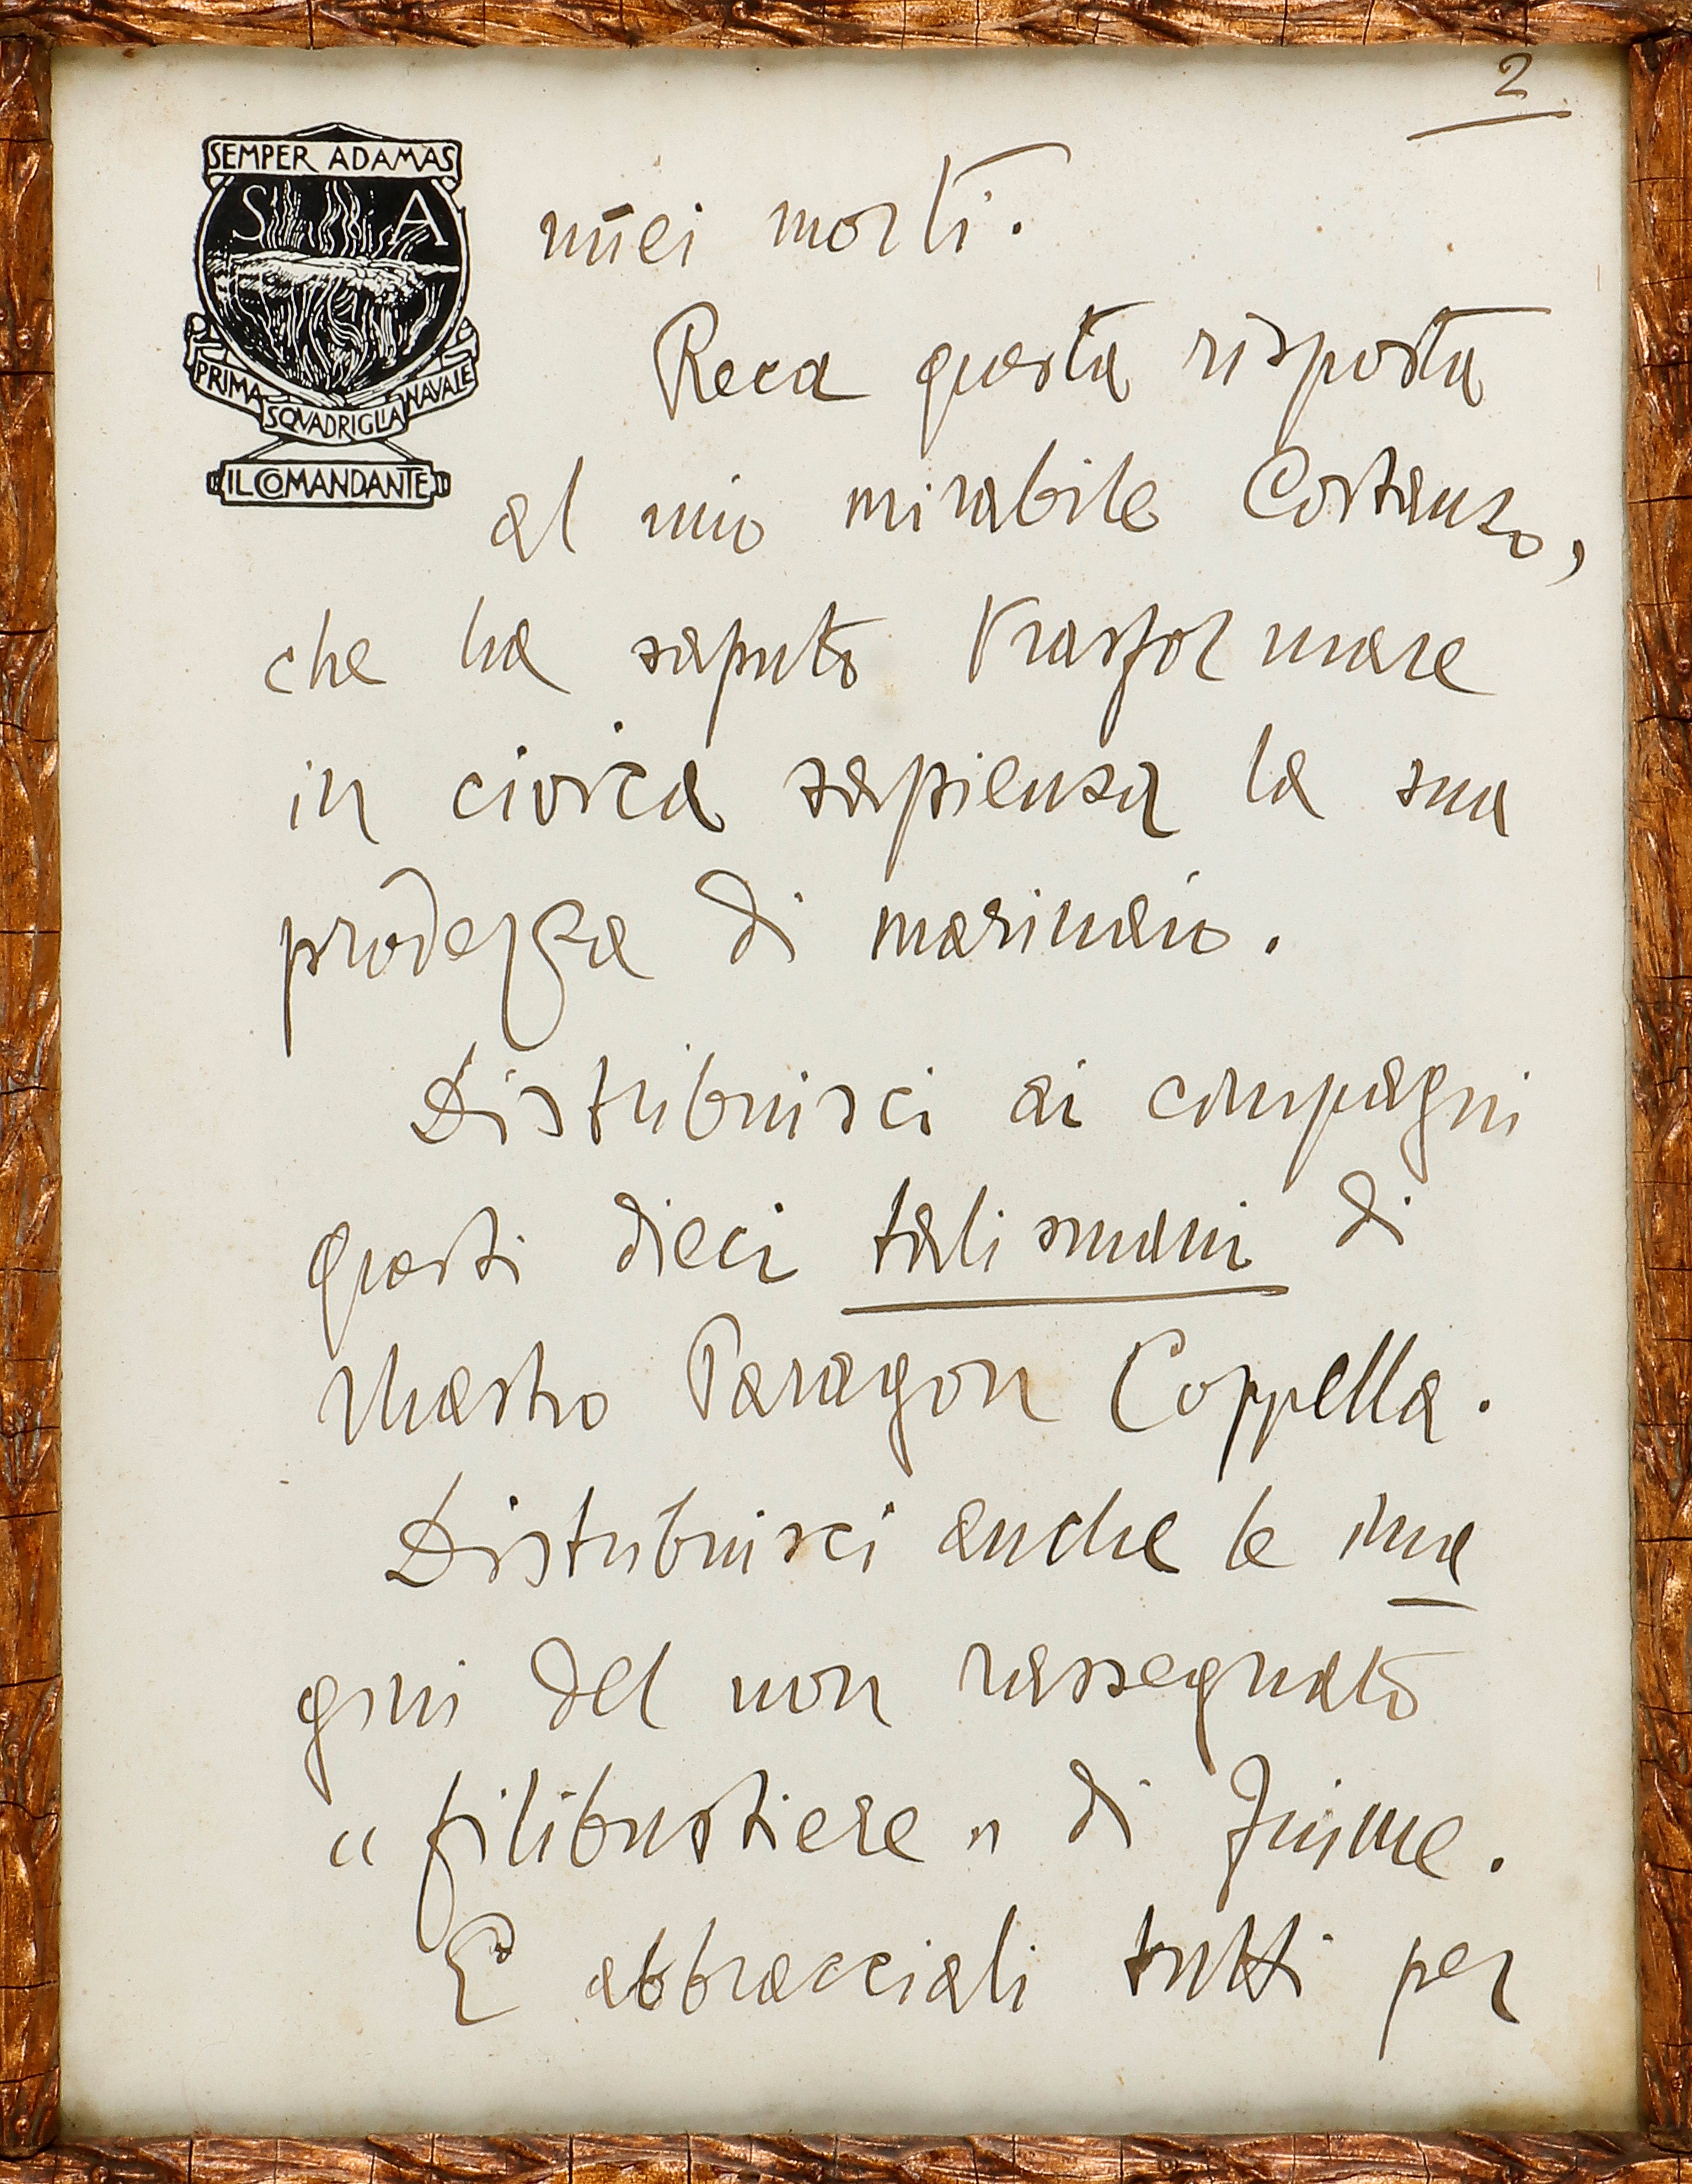 2
SEMPER ADAMAS
S A
PRIMA SQVADRIGLIA NAVALE
IL COMANDANTE
miei morti.
Reca questa risposta
al mio mirabile Costanzo,
che ha saputo trasformare
in civica sapienza la sua
prodezza di marinaio.
Distribuisci ai compagni
questi dieci talismani di
Mastro Paragon Coppella.
Distribuisci anche le ima
gini del non rassegnato
"filibustiere" di Fiume.
E abbracciali tutti per